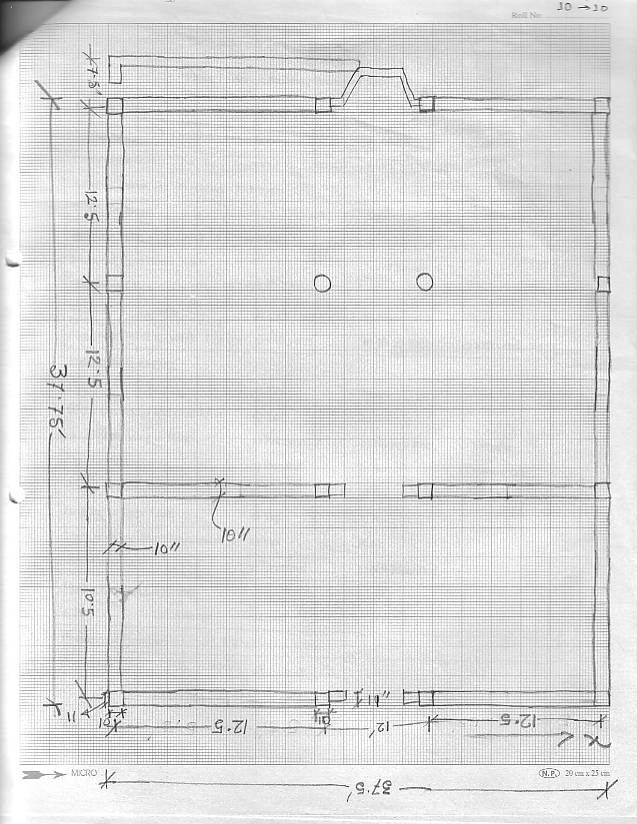 Roll No. 10 → 10
7.5'
12.5
12.5
37.75'
10"
10"
10.5
11"
12.5
12'
12.5
x
MICRO
N.P. 20 cm x 25 cm
37.5'